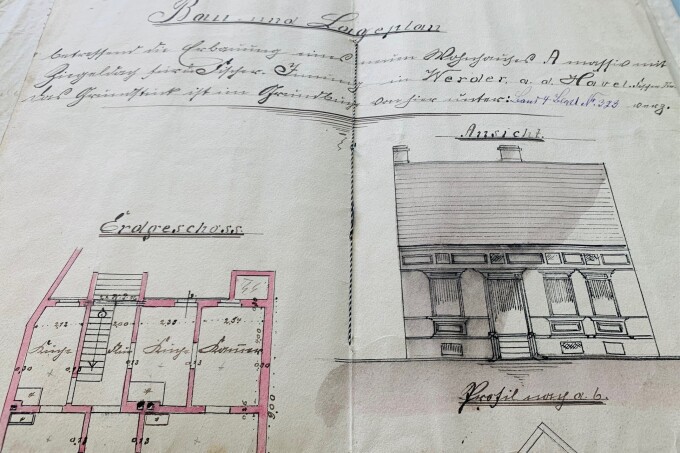 Bau- und Lageplan
betreffend die Erbauung eines neuen Wohnhauses A massiv mit
Ziegeldach für die Fischer-Innung in Werder a. d. Havel.
das Grundstück ist im Grundbuch von hier unter: Band 9 Blatt No. 323 verz.
Ansicht.
Erdgeschoss
2,00
2,38
2,54
Küche
Flur
Küche
Kammer
Profil nach a. b.